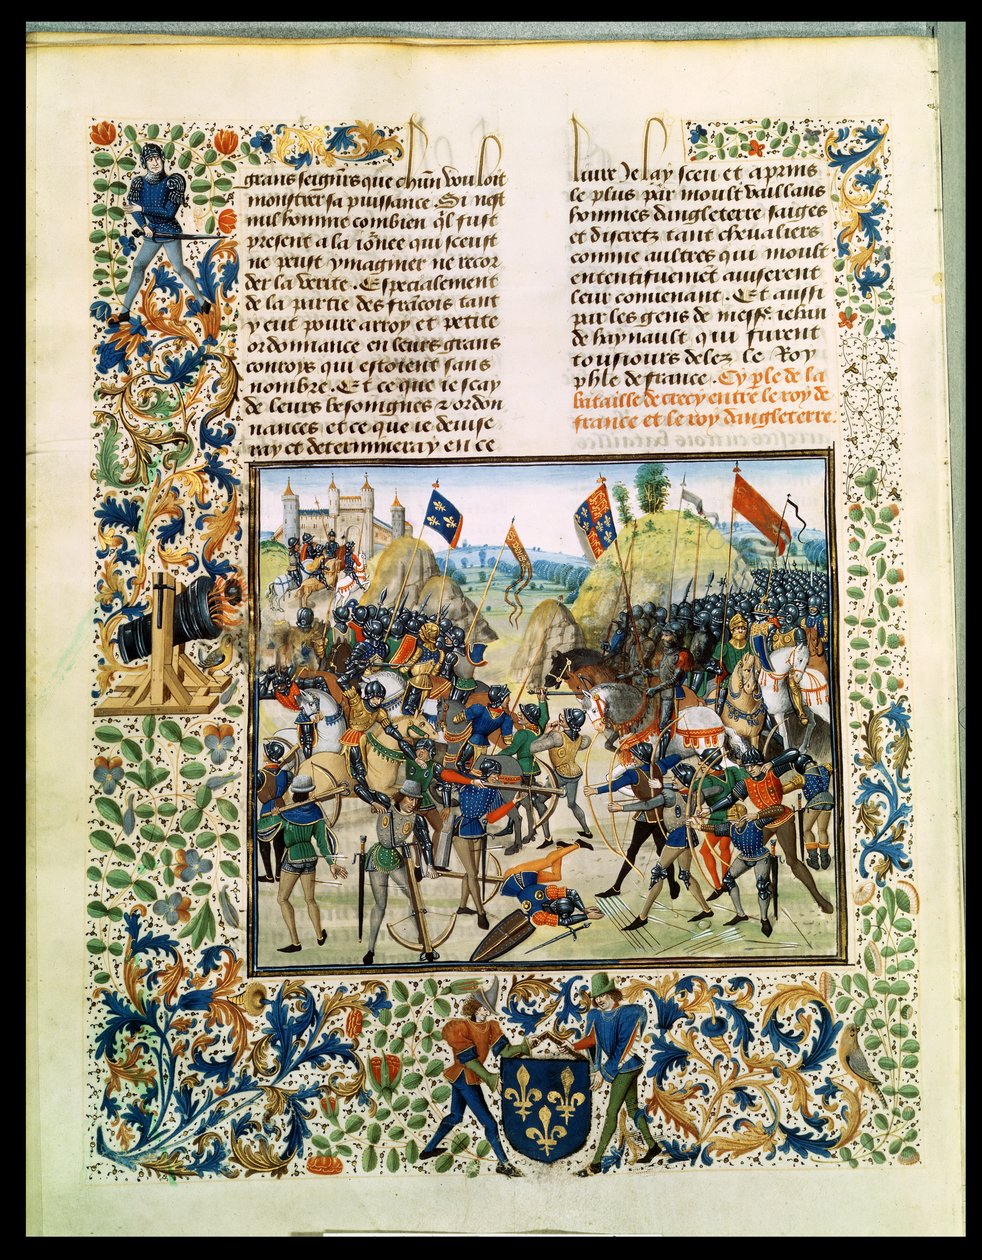 grans seigñrs que chũn vouloit
monstrer sa puissance. Si nest
nul homme combien q̃l fust
present a la iõnee qui sceust
ne peust ymaginer ne recor
der la verite. Especialement
de la partie des frãcois tant
y eut poure arroy et petite
ordonnance en leurs grans
conrois qui estoient sans
nombre. Et ce que ie scay
de leurs besoingnes et ordon
nances et ce que ie deuise
ray et determineray en ce
liure Je lay sceu et aprins
le plus par moult vaillans
hommes dangleterre saiges
et discretz tant cheualiers
comme aultres qui moult
ententiuemẽt auiserent
leur conuenant. Et aussi
par les gens de messẽ iehan
de haynault qui furent
tousiours delez le Roy
phle de france. Cy ple de la
bataille de crecy entre le roy de
france et le roy dangleterre.